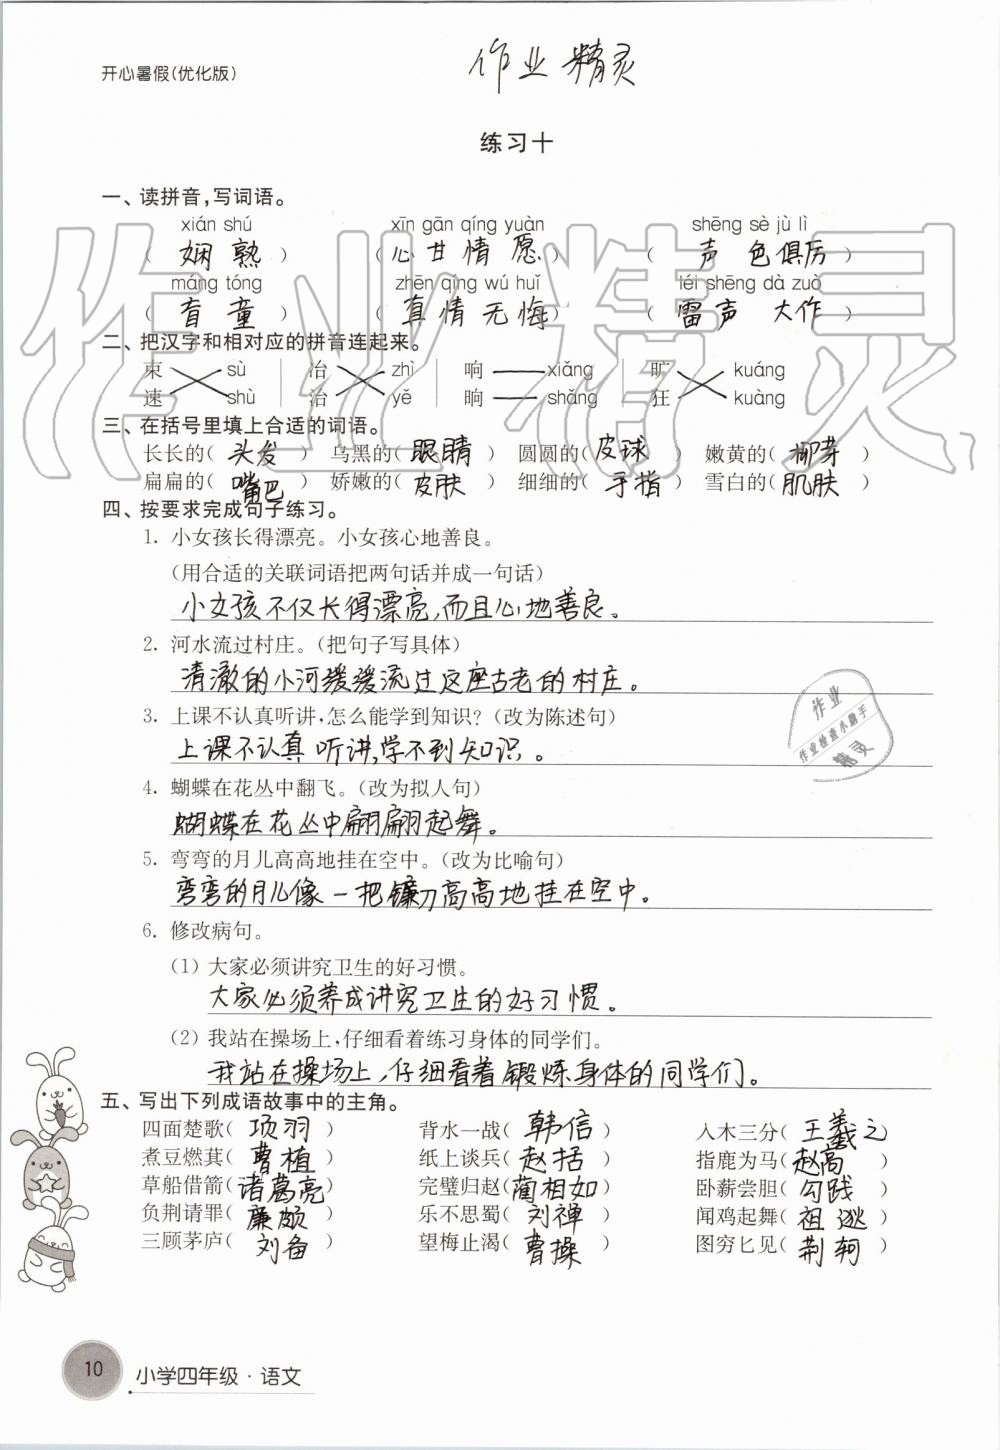 开心暑假(优化版)
作业精灵
练习十
一、读拼音,写词语。
xián shú xīn gān qíng yuàn shēng sè jù lì
( 娴熟 ) ( 心甘情愿 ) ( 声色俱厉 )
máng tóng zhēn qíng wú huǐ léi shēng dà zuò
( 盲童 ) ( 真情无悔 ) ( 雷声大作 )
二、把汉字和相对应的拼音连起来。
束 sù 冶 zhì 响 xiǎng 旷 kuáng
速 shù 治 yě 晌 shǎng 狂 kuàng
三、在括号里填上合适的词语。
长长的( 头发 ) 乌黑的( 眼睛 ) 圆圆的( 皮球 ) 嫩黄的( 柳芽 )
扁扁的( 嘴巴 ) 娇嫩的( 皮肤 ) 细细的( 手指 ) 雪白的( 肌肤 )
四、按要求完成句子练习。
1. 小女孩长得漂亮。小女孩心地善良。
(用合适的关联词语把两句话并成一句话)
小女孩不仅长得漂亮,而且心地善良。
2. 河水流过村庄。(把句子写具体)
清澈的小河缓缓流过这座古老的村庄。
3. 上课不认真听讲,怎么能学到知识?(改为陈述句)
上课不认真听讲,学不到知识。
4. 蝴蝶在花丛中翻飞。(改为拟人句)
蝴蝶在花丛中翩翩起舞。
5. 弯弯的月儿高高地挂在空中。(改为比喻句)
弯弯的月儿像一把镰刀高高地挂在空中。
6. 修改病句。
(1) 大家必须讲究卫生的好习惯。
大家必须养成讲究卫生的好习惯。
(2) 我站在操场上,仔细看着练习身体的同学们。
我站在操场上,仔细看着锻炼身体的同学们。
五、写出下列成语故事中的主角。
四面楚歌( 项羽 ) 背水一战( 韩信 ) 入木三分( 王羲之 )
煮豆燃萁( 曹植 ) 纸上谈兵( 赵括 ) 指鹿为马( 赵高 )
草船借箭( 诸葛亮 ) 完璧归赵( 蔺相如 ) 卧薪尝胆( 勾践 )
负荆请罪( 廉颇 ) 乐不思蜀( 刘禅 ) 闻鸡起舞( 祖逖 )
三顾茅庐( 刘备 ) 望梅止渴( 曹操 ) 图穷匕见( 荆轲 )
作业
作业检查小助手
精灵
10
小学四年级·语文
作业精灵